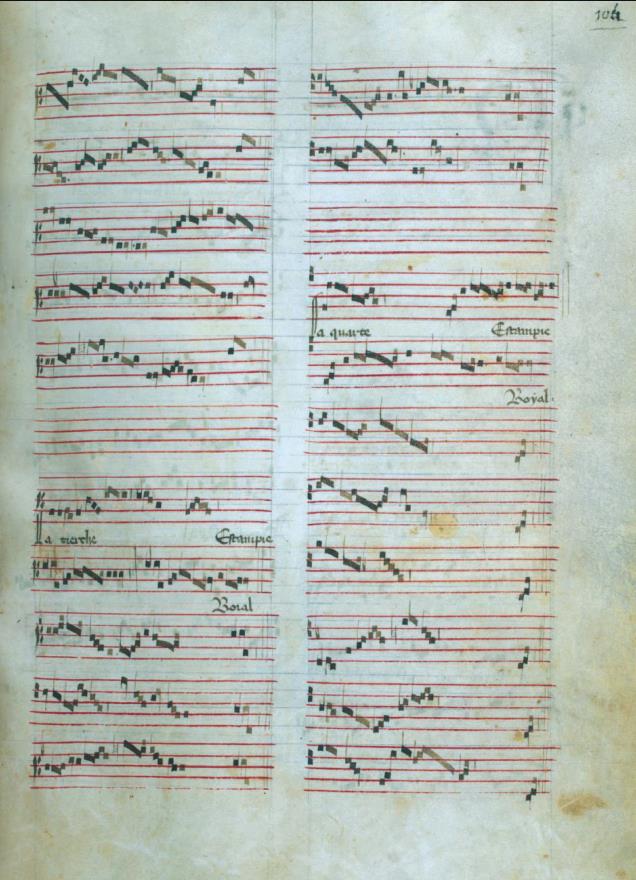 104
La tierche Estampie
Roial
La quarte Estampie
Royal.